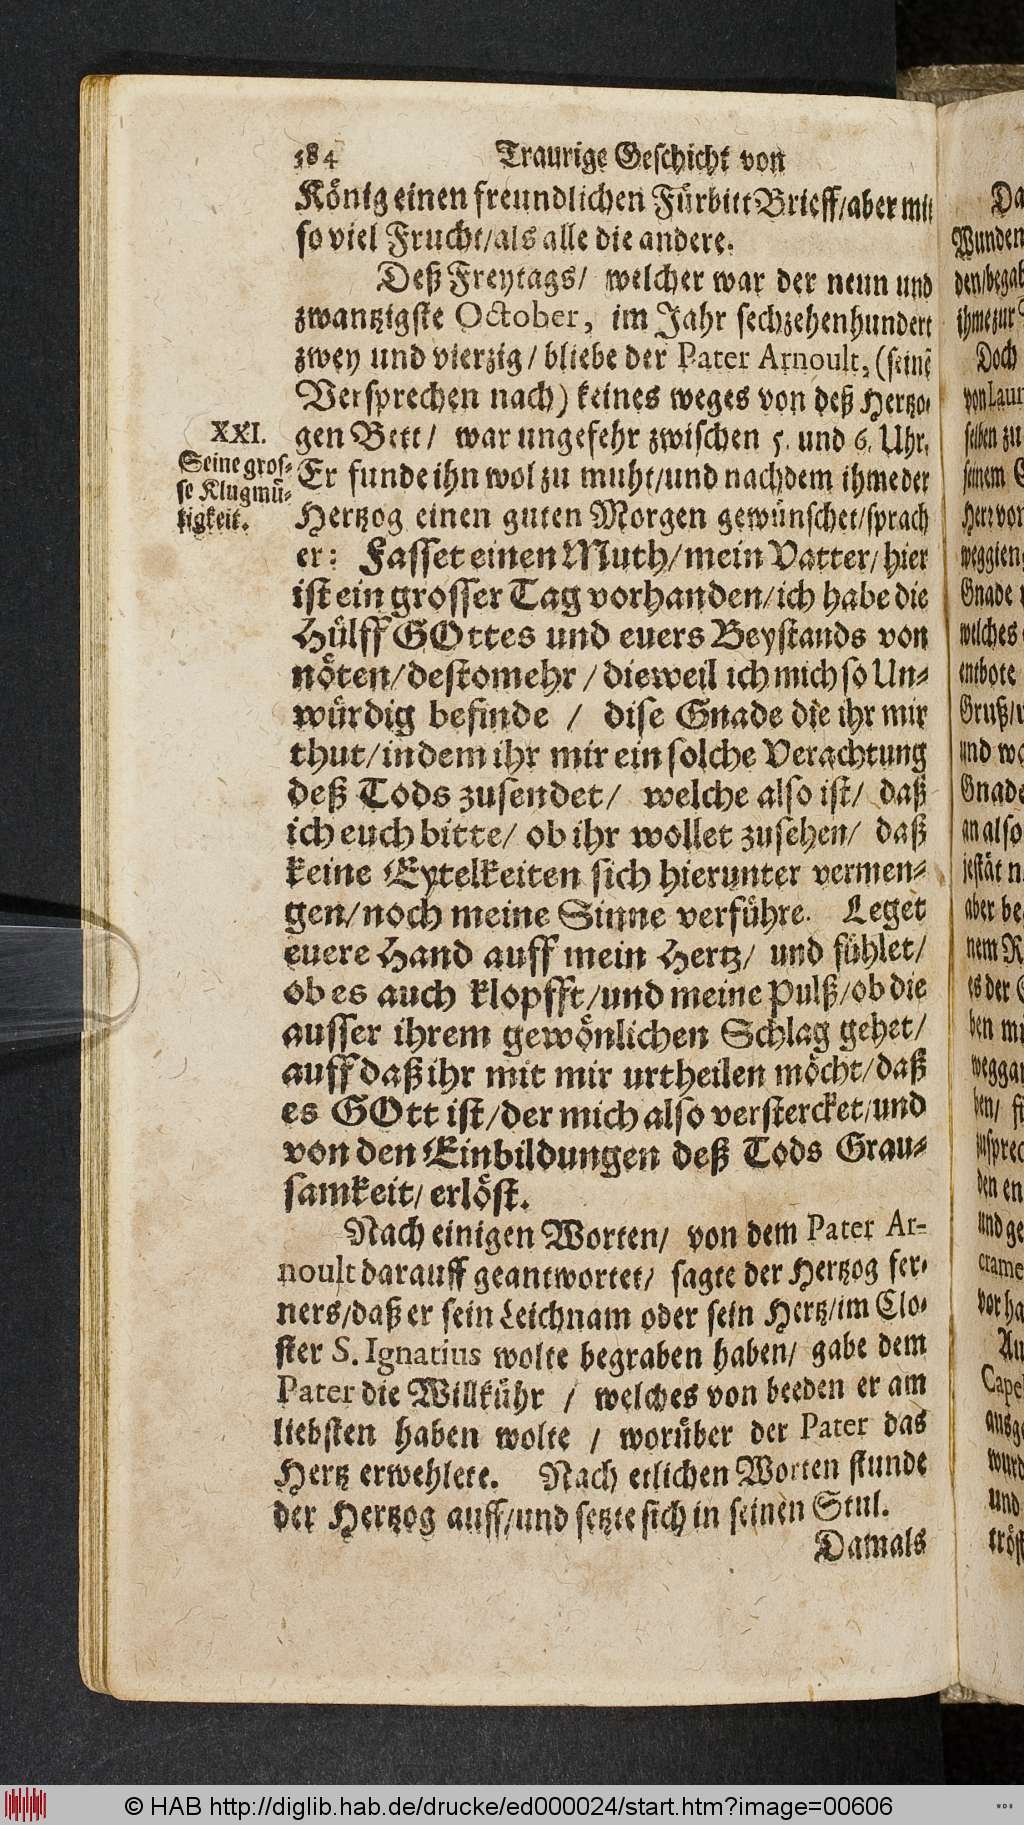 584 Traurige Geschicht von
König einen freundlichen Fürbitt Brieff/aber mit
so viel Frucht/als alle die andere.
Deß Freytags/ welcher war der neun und
zwantzigste October, im Jahr sechzehenhundert
zwey und vierzig/ bliebe der Pater Arnoult, (seinē
Versprechen nach) keines weges von deß Hertzo-
gen Bett/ war ungefehr zwischen 5. und 6. Uhr.
XXI.
Seine gros-
se Klugmü-
tigkeit.
Er funde ihn wol zu muht/und nachdem ihme der
Hertzog einen guten Morgen gewünschet/sprach
er: Fasset einen Muth/mein Vatter/hier
ist ein grosser Tag vorhanden/ich habe die
Hülff GOttes und euers Beystands von
nöten/destomehr/dieweil ich mich so Un-
würdig befinde / dise Gnade die ihr mir
thut/indem ihr mir ein solche Verachtung
deß Tods zusendet/ welche also ist/ daß
ich euch bitte/ ob ihr wollet zusehen/ daß
keine Eytelkeiten sich hierunter vermen-
gen/noch meine Sinne verführe. Leget
euere Hand auff mein Hertz/ und fühlet/
ob es auch klopfft/und meine Pulß/ob die
ausser ihrem gewönlichen Schlag gehet/
auff daß ihr mit mir urtheilen möcht/daß
es GOtt ist/der mich also verstercket/und
von den Einbildungen deß Tods Grau-
samkeit/erlöst.
Nach einigen Worten/ von dem Pater Ar-
noult darauff geantwortet/ sagte der Hertzog fer-
ners/daß er sein Leichnam oder sein Hertz/im Clo-
ster S. Ignatius wolte begraben haben/ gabe dem
Pater die Willkühr / welches von beeden er am
liebsten haben wolte / worüber der Pater das
Hertz erwehlete. Nach etlichen Worten stunde
der Hertzog auff/und setzte sich in seinen Stul.
Damals
Wunden
Doch
von Laur
seinem
Gnade
welches
entbote
Gruß/
Gnade
an also
jestät
aber be
nem R
es der
und ge
crame
vor ha
Capel
und
© HAB http://diglib.hab.de/drucke/ed000024/start.htm?image=00606